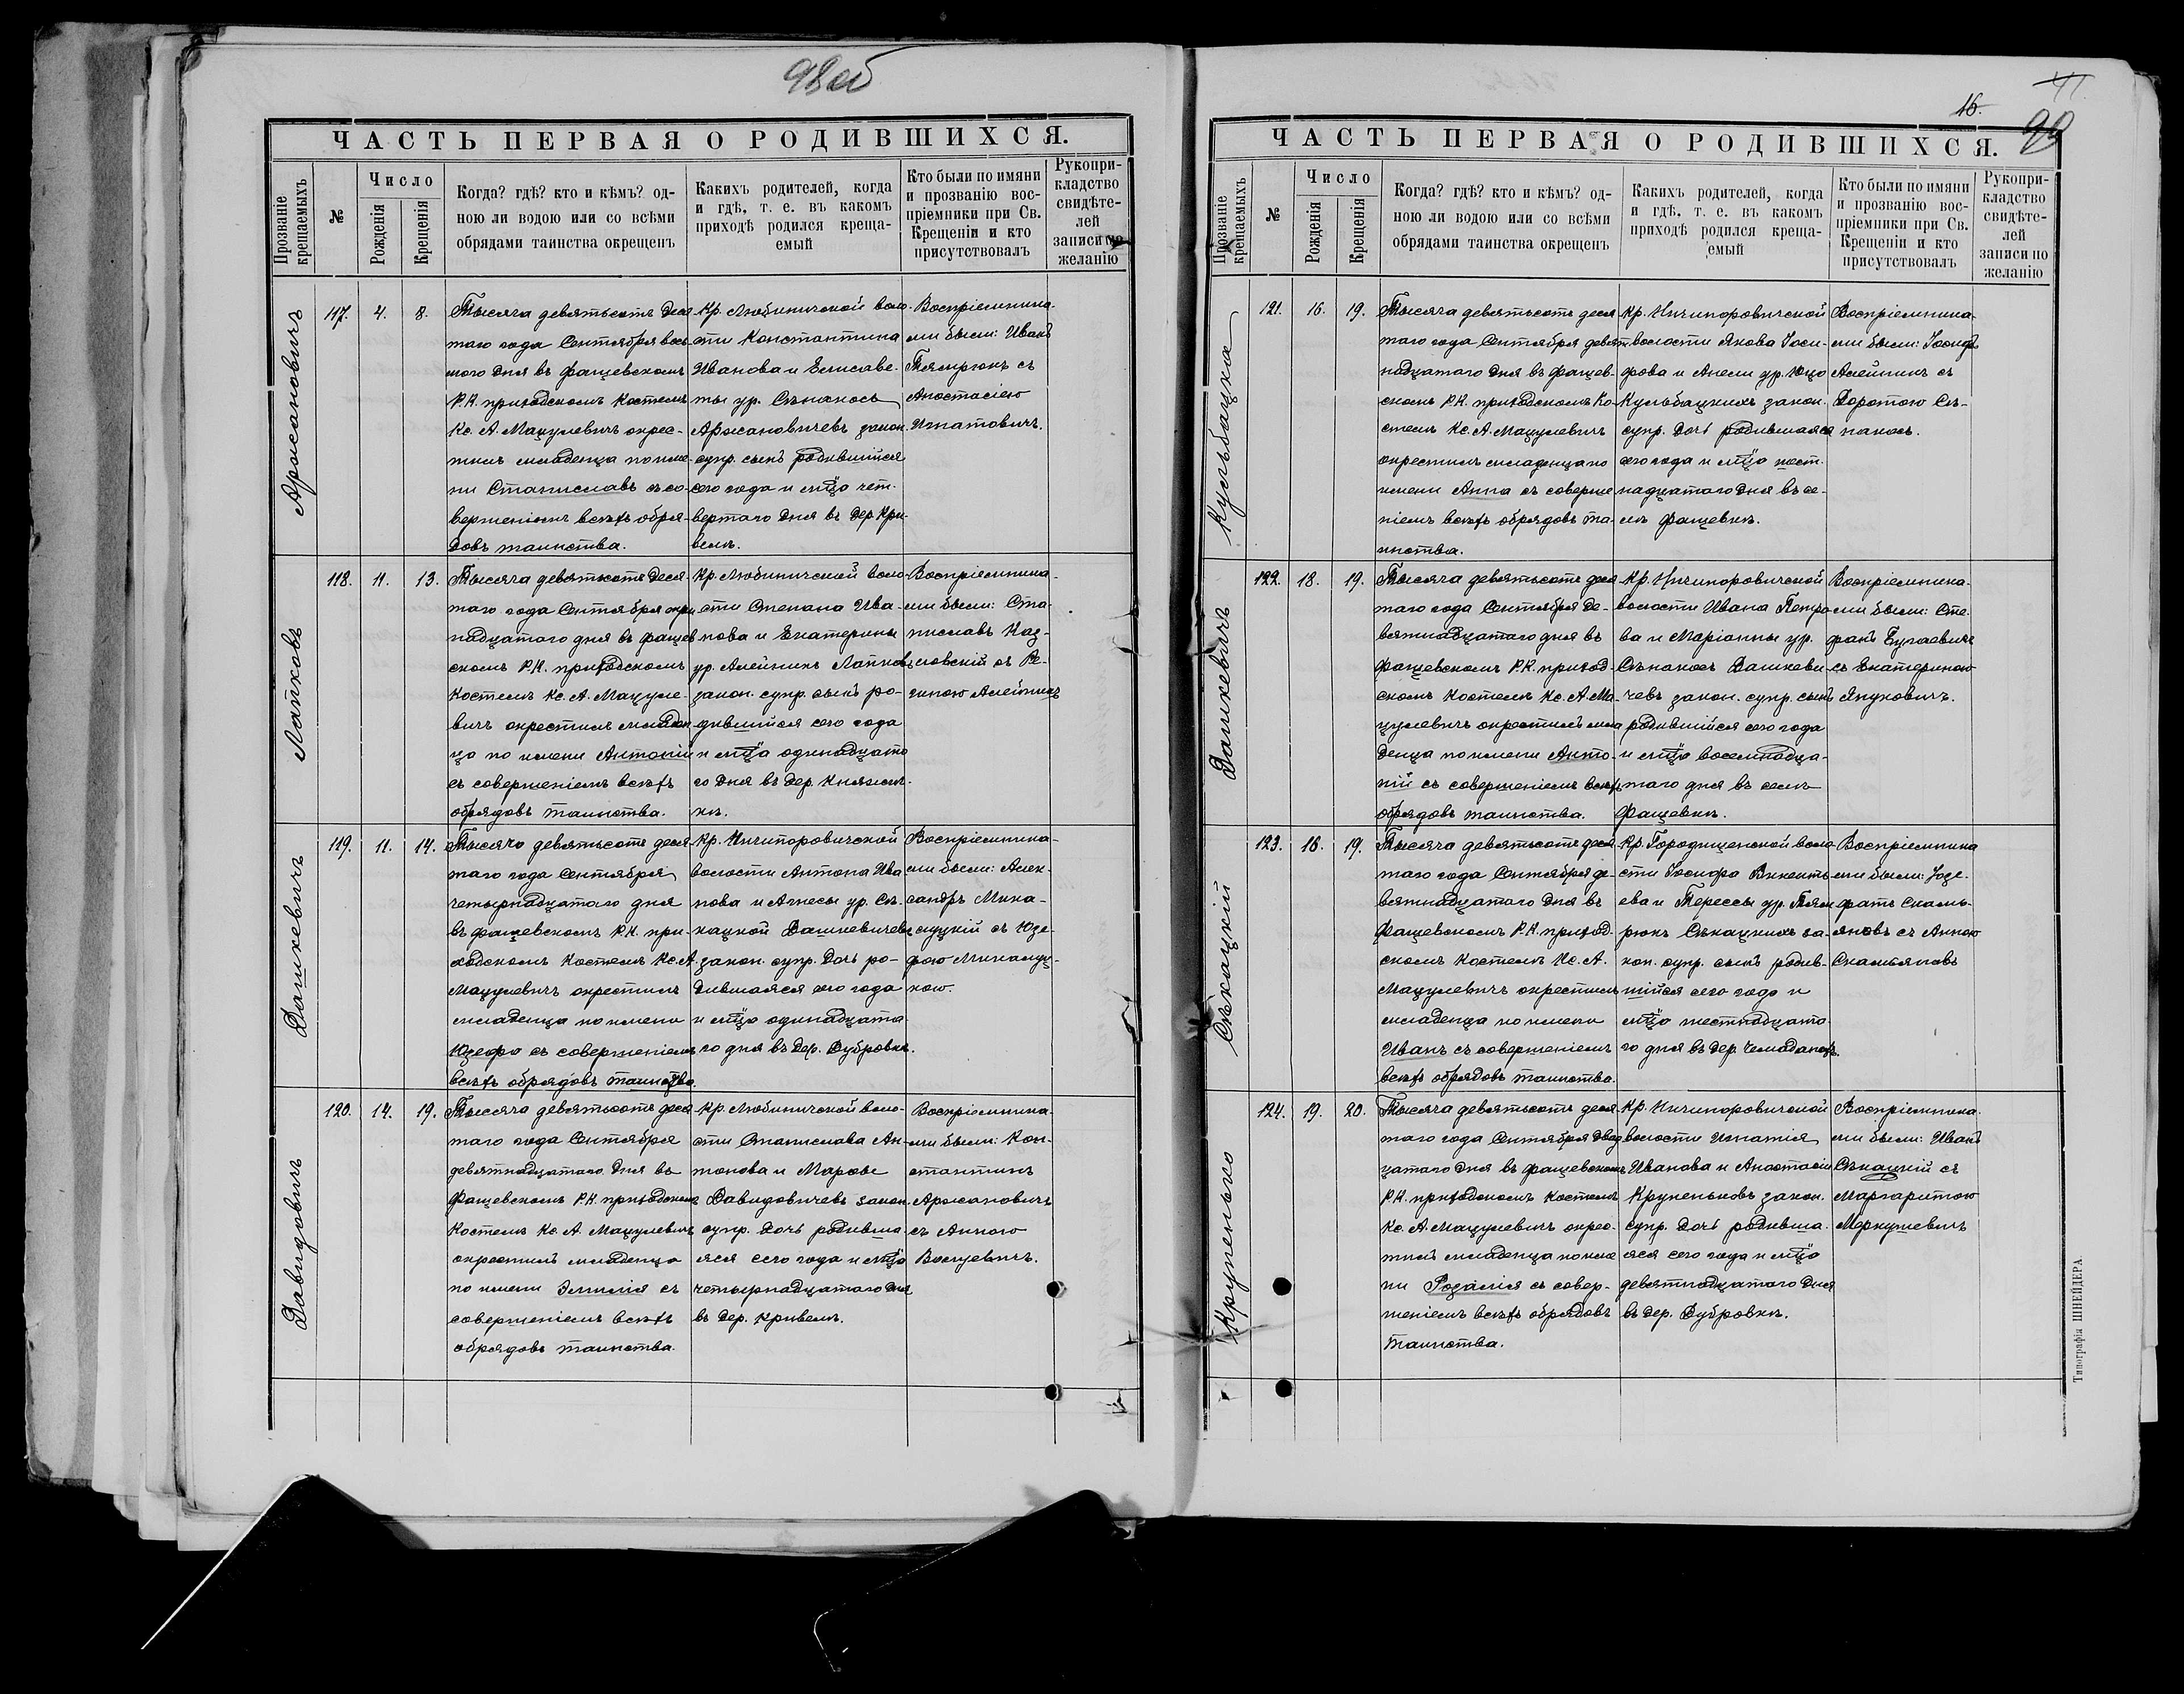 98об
ЧАСТЬ ПЕРВАЯ О РОДИВШИХСЯ.
Прозваніе крещаемыхъ
№
Число
Рожденія
Крещенія
Когда? гдѣ? кто и кѣмъ? од-
ною ли водою или со всѣми
обрядами таинства окрещенъ
Какихъ родителей, когда
и гдѣ, т. е. въ какомъ
приходѣ родился креща-
емый
Кто были по имяни
и прозванію вос-
пріемники при Св.
Крещеніи и кто
присутствовалъ
Рукопри-
кладство
свидѣте-
лей
записи по
желанію
Аржановичъ
117. 4. 8.
Тысяча девятьсотъ деся
таго года Сентября вось
мого дня въ Фащевскомъ
Р.К. приходскомъ костелѣ
Кс. А. Мацулевичъ окрес-
тилъ младенца по име-
ни Станиславъ съ со-
вершеніемъ всѣхъ обря-
довъ таинства.
Кр. Любиничской воло-
сти Константина
Иванова и Елисаве-
ты ур. Сѣнакось
Аржановичевъ закон.
супр. сынъ родившійся
сего года и мѣца чет-
вертаго дня въ дер. Кри-
велѣ.
Воспріемника-
ми были: Иванъ
Тямрюкъ съ
Анастасіею
Игнатовичъ.
Лапковъ
118. 11. 13.
Тысяча девятьсотъ деся-
таго года Сентября
надцатаго дня въ Фащев
скомъ Р.К. приходскомъ
костелѣ Кс. А. Мацуле-
вичъ окрестилъ младен
ца по имени Антоній
съ совершеніемъ всѣхъ
обрядовъ таинства.
Кр. Любиничской воло-
сти Степана Ива-
нова и Екатерины
ур. Алейникъ Лапков
закон. супр. сынъ ро-
дившійся сего года
и мѣца одинадцата
го дня въ дер. Княжи-
кѣ.
Воспріемника-
ми были: Ста-
ниславъ Коз-
ловскій съ Ре-
гиною Алейникъ
Дашкевичъ
119. 11. 14.
Тысяча девятьсотъ деся-
таго года Сентября
четырнадцатаго дня
въ Фащевскомъ Р.К. при-
ходскомъ костелѣ Кс. А.
Мацулевичъ окрестилъ
младенца по имени
Юзефа съ совершеніемъ
всѣхъ обрядовъ таинства.
Кр. Ничипоровичской
волости Антона Ива
нова и Агнесы ур. Сѣ-
кацкой Дашкевичевъ
закон. супр. дочь ро-
дившаяся сего года
и мѣца одинадцата-
го дня въ дер. Дубровкѣ.
Воспріемника-
ми были: Алек-
сандръ Мика-
луцкій съ Юзе-
фою Микалуц-
кою.
Давидовичъ
120. 14. 19.
Тысяча девятьсотъ деся
таго года Сентября
девятнадцатаго дня въ
Фащевскомъ Р.К. приходском
костелѣ Кс. А. Мацулевичъ
окрестилъ младенца
по имени Эмилія съ
совершеніемъ всѣхъ
обрядовъ таинства.
Кр. Любиничской воло-
сти Станислава Ан-
тонова и Марьи
Давидовичевъ закон.
супр. дочь родивша-
яся сего года и мѣца
четырнадцатаго дня
въ дер. Кривелѣ.
Воспріемника-
ми были: Кон-
стантинъ
Аржановичъ
съ Анною
Войцевичъ.
41
16.
99
ЧАСТЬ ПЕРВАЯ О РОДИВШИХСЯ.
Прозваніе крещаемыхъ
№
Число
Рожденія
Крещенія
Когда? гдѣ? кто и кѣмъ? од-
ною ли водою или со всѣми
обрядами таинства окрещенъ
Какихъ родителей, когда
и гдѣ, т. е. въ какомъ
приходѣ родился креща-
емый
Кто были по имяни
и прозванію вос-
пріемники при Св.
Крещеніи и кто
присутствовалъ
Рукопри-
кладство
свидѣте-
лей
записи по
желанію
Кульбацка
121. 16. 19.
Тысяча девятьсотъ деся
таго года Сентября девят-
надцатаго дня въ Фащев-
скомъ Р.К. приходскомъ ко-
стелѣ Кс. А. Мацулевичъ
окрестилъ младенца по
имени Анна съ соверше
ніемъ всѣхъ обрядовъ та-
инства.
Кр. Ничипоровичской
волости Якова Іоси-
фова и Анели ур.
Кульбацкихъ закон.
супр. дочь родившаяся
сего года и мѣца шест-
надцатаго дня въ се-
лѣ Фащевкѣ.
Воспріемника-
ми были: Іосифъ
Алейникъ съ
Доротою Сѣ-
накось.
Дашкевичъ
122. 18. 19.
Тысяча девятьсотъ деся
таго года Сентября де-
вятнадцатаго дня въ
Фащевскомъ Р.К. приход-
скомъ костелѣ Кс. А. Ма-
цулевичъ окрестилъ мла
денца по имени Анто-
ній съ совершеніемъ всѣхъ
обрядовъ таинства.
Кр. Ничипоровичской
волости Ивана Петро
ва и Маріанны ур.
Сѣнакось Дашкеви-
чевъ закон. супр. сынъ
родившійся сего года
и мѣца восемнадца-
таго дня въ селѣ
Фащевкѣ.
Воспріемника-
ми были: Сте-
фанъ
съ Екатериною
Януковичъ.
Сѣкацкій
123. 16. 19.
Тысяча девятьсотъ деся
таго года Сентября де-
вятнадцатаго дня въ
Фащевскомъ Р.К. приход-
скомъ костелѣ Кс. А.
Мацулевичъ окрестилъ
младенца по имени
Иванъ съ совершеніемъ
всѣхъ обрядовъ таинства.
Кр. Городищенской воло
сти Іосифа Викенть-
ева и Терессы ур. Тям
рюкъ Сѣкацкихъ за-
кон. супр. сынъ родив-
шійся сего года и
мѣца шестнадцата-
го дня въ дер. Чемоданахъ.
Воспріемника
ми были: Юзе-
фатъ Скамь-
яновъ съ Анною
Скамьяновъ
Крупенько
124. 19. 20.
Тысяча девятьсотъ деся
таго года Сентября двад
цатаго дня въ Фащевскомъ
Р.К. приходскомъ костелѣ
Кс. А. Мацулевичъ окрес-
тилъ младенца по име
ни Розалія съ совер-
шеніемъ всѣхъ обрядовъ
таинства.
Кр. Ничипоровичской
волости Игнатія
Иванова и Анастасіи
Крупеньковъ закон.
супр. дочь родивша-
яся сего года и мѣца
девятнадцатаго дня
въ дер. Дубровкѣ.
Воспріемника-
ми были: Иванъ
Сѣкацкій съ
Маргаритою
Меркушевичъ
Типографія ШНЕЙДЕРА